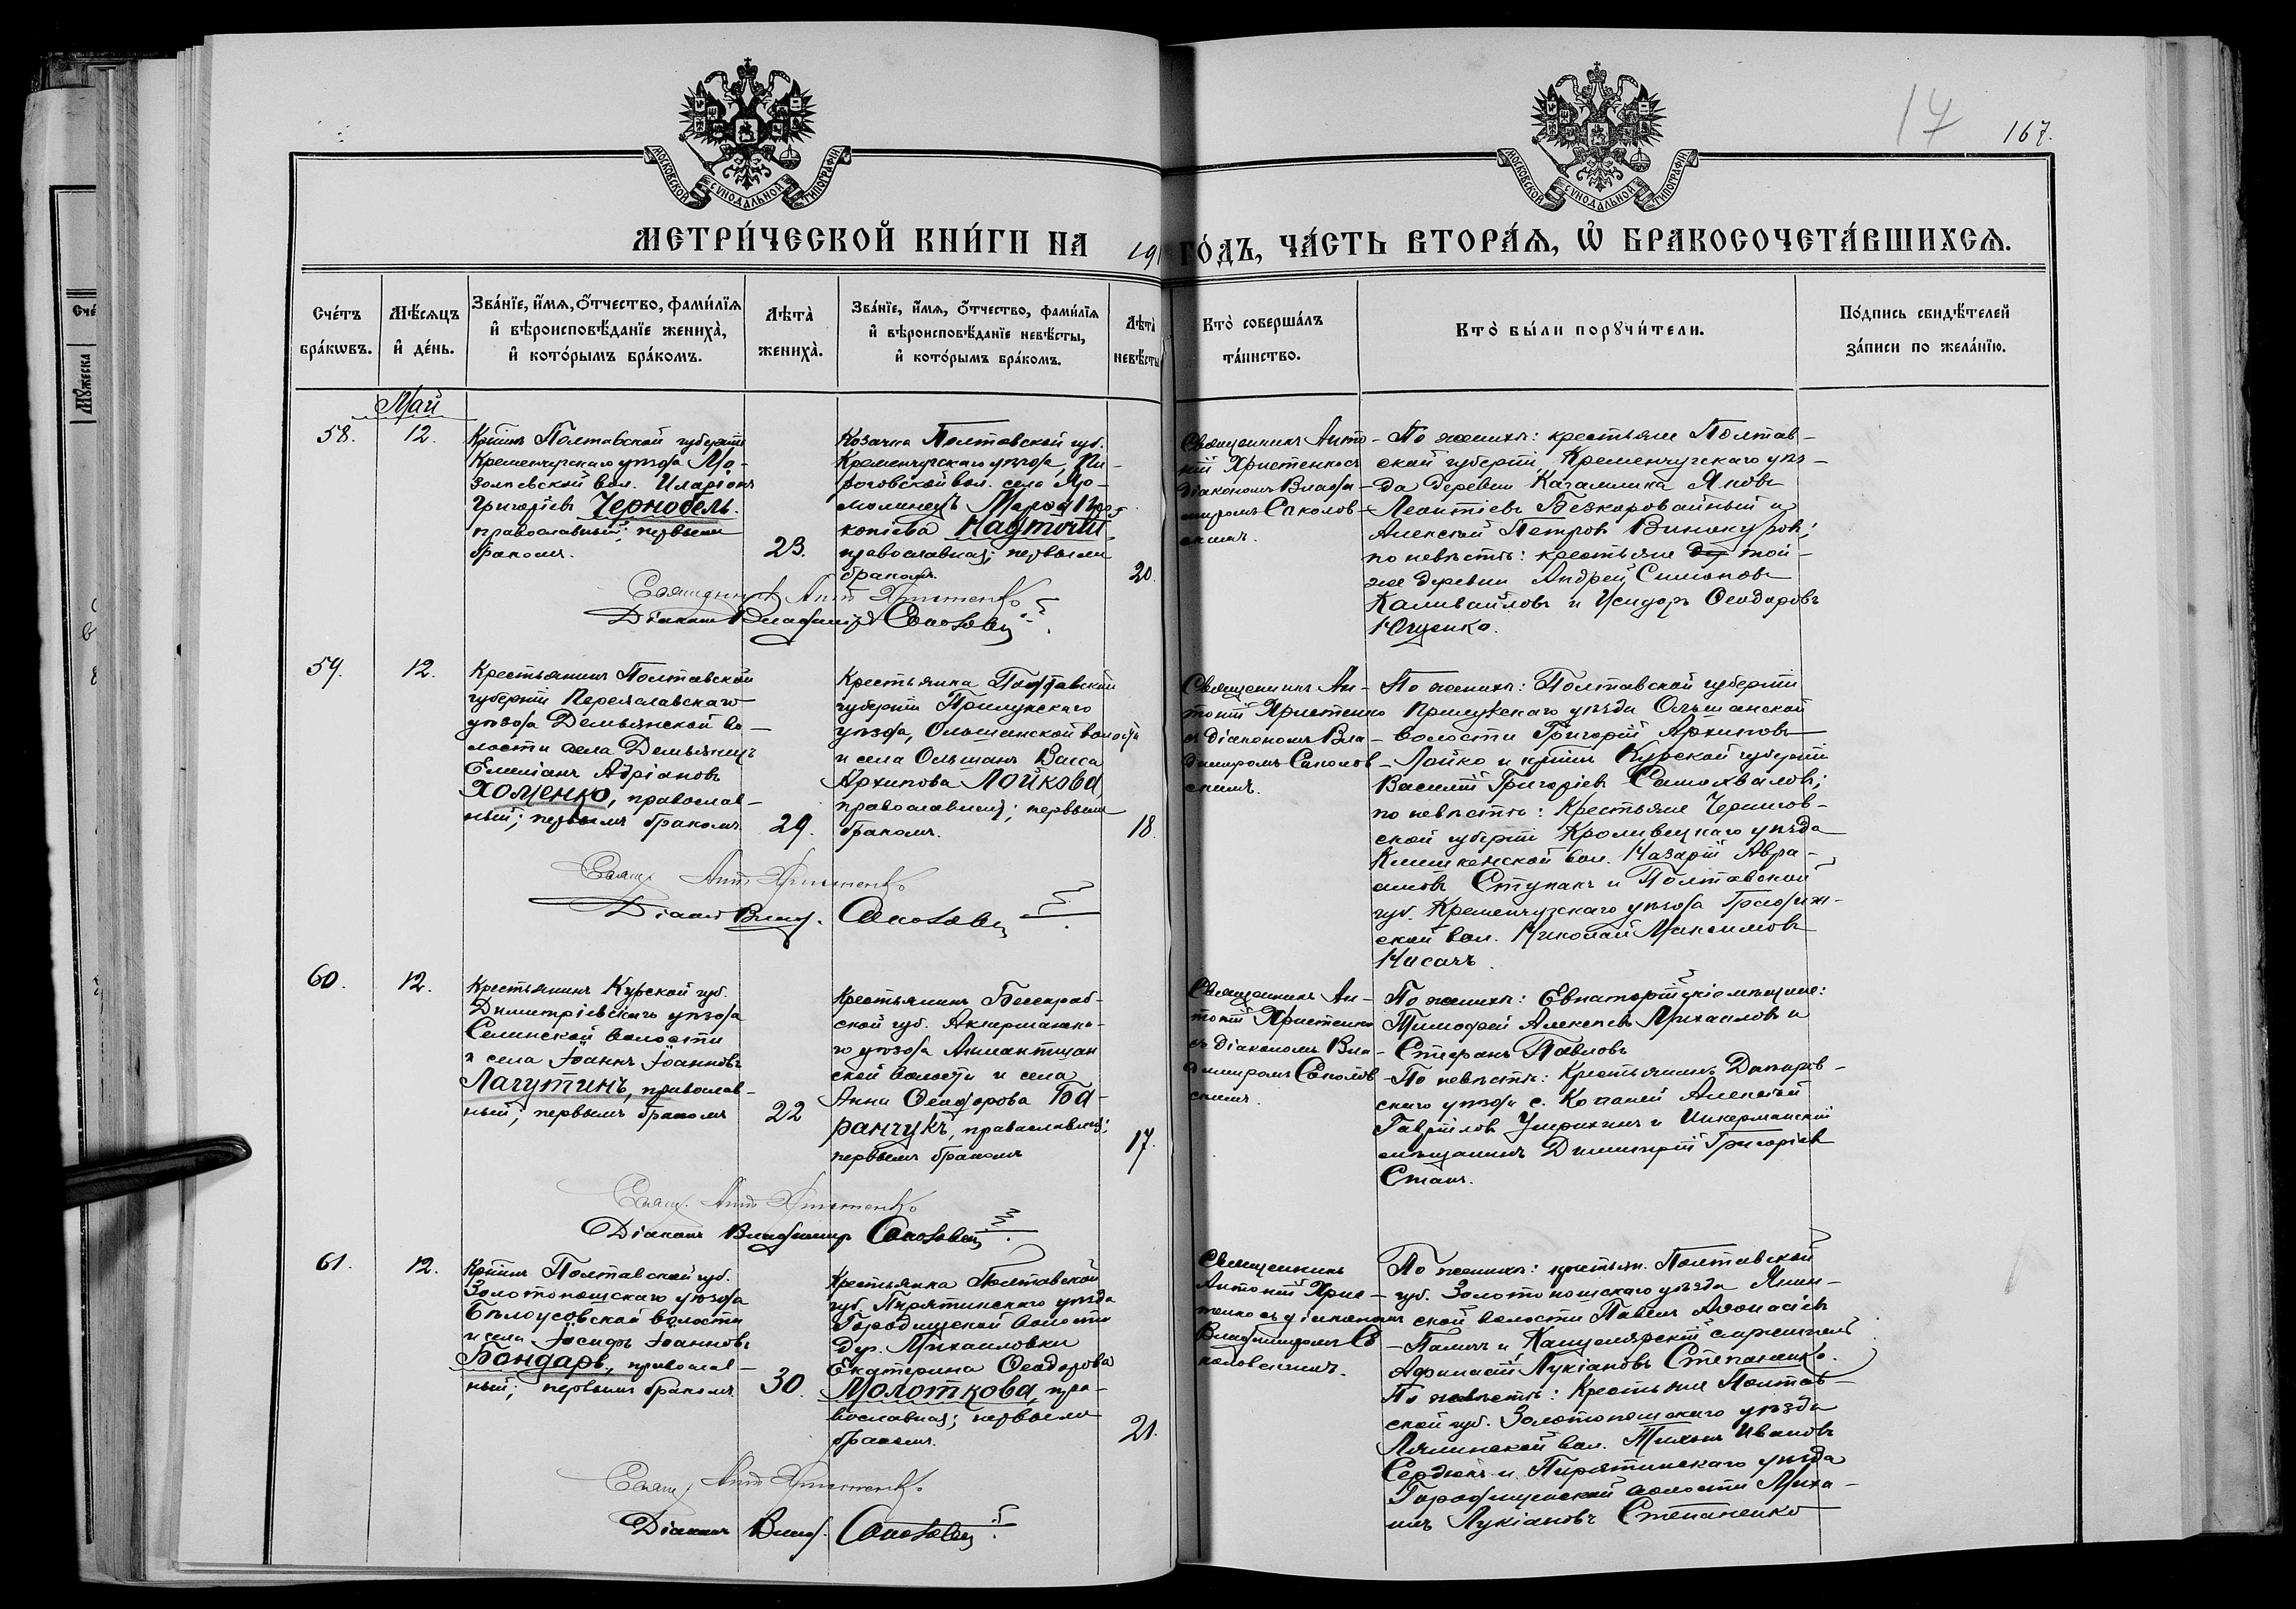 17
167.
МОСКОВСКОЙ СѴНОДАЛЬНОЙ ТИПОГРАФІИ
МОСКОВСКОЙ СѴНОДАЛЬНОЙ ТИПОГРАФІИ
МЕТРИ́ЧЕСКОЙ КНИ́ГИ НА 191 ГО́ДЪ, ЧА́СТЬ ВТОРА́Я, Ѡ҆ БРАКОСОЧЕТА́ВШИХСЯ.
Сче́тъ бра́кѡвъ.
Мѣ́сяцъ и҆ де́нь.
Зва́нїе, и҆́мя, ѻ҆́тчество, фами́лїя
и҆ вѣроисповѣ́данїе жениха̀,
и҆ кото́рымъ бра́комъ.
Лѣта̀ жениха̀.
Зва́нїе, и҆́мя, ѻ҆́тчество, фами́лїя
и҆ вѣроисповѣ́данїе невѣ́сты,
и҆ кото́рымъ бра́комъ.
Лѣта̀ невѣ́сты
Кто̀ соверша́лъ
та́инство.
Кто̀ бы́ли порꙋчи́тели.
По́дпись свидѣ́телей
за́писи по жела́нїю.
Май
58.
12.
Полтавской губерніи
Кременчугскаго уѣзда
вол. Иларіонъ
Григоріевъ Чернобель.
православный; первымъ
бракомъ.
23.
Козачка Полтавской губ.
Кременчугскаго уѣзда, Пи-
роговской вол. села
копіева
православная; первымъ
бракомъ.
20.
Священникъ Анто-
ній Христенко съ
діакономъ Влади-
миромъ Соколов-
скимъ.
По женихѣ: крестьяне Полтав-
ской губерніи, Кременчугскаго уѣз-
да деревни Яковъ
Леонтіевъ Безкоровайный и
Алексѣй Петровъ Винокуровъ;
по невѣстѣ: крестьяне той-
же деревни Андрей Симоновъ
и Исидоръ Ѳеодоровъ
Ющенко.
Священникъ Ант. Христенко
Діаконъ Владиміръ Соколовскій
59.
12.
Крестьянинъ Полтавской
губерніи Переяславскаго
уѣзда Демьянской во-
лости села Демьянцъ
Емиліанъ Адріановъ
Хоменко, православ-
ный; первымъ бракомъ.
29.
Крестьянка Полтавской
губерніи Прилукскаго
уѣзда, Ольшанской волости
и села Ольшанъ Васса
Архипова Лойкова,
православная; первымъ
бракомъ.
18.
Священникъ Ан-
тоній Христенко
съ діакономъ Вла-
димиромъ Соколов-
скимъ.
По женихѣ: Полтавской губерніи
Прилукскаго уѣзда Ольшанской
волости Григорій Архиповъ
Лойко и Курской губерніи
Василій Григоріевъ Самохваловъ;
по невѣстѣ: Крестьяне Чернигов-
ской губерніи Кролевецкаго уѣзда
вол. Назарій Авра-
амовъ Ступакъ и Полтавской
губ. Кременчугскаго уѣзда
ской вол. Николай Максимовъ
Носачъ.
Свящ. Ант. Христенко
Діаконъ Влад. Соколовскій
60.
12.
Крестьянинъ Курской губ.
Димитріевскаго уѣзда
Селинской волости
и села Іоаннъ Іоанновъ
Лагутинъ, православ-
ный; первымъ бракомъ
22
Крестьянинъ Бессараб-
ской губ. Аккерманска-
го уѣзда
ской волости и села
Анна Ѳеодорова Ба-
ранчукъ, православная;
первымъ бракомъ
17.
Священникъ Ан-
тоній Христенко
съ діакономъ Вла-
димиромъ Соколов-
скимъ.
По женихѣ: Евпаторійскіе мѣщане:
Тимофей Алексѣевъ Михаиловъ и
Стефанъ Павловъ
По невѣстѣ: Крестьянинъ Днѣпров-
скаго уѣзда с. Копаней Алексѣй
Гавріиловъ и
мѣщанинъ Димитрій Григоріевъ
Свящ. Ант. Христенко
Діаконъ Владимиръ Соколовскій
61.
12.
Полтавской губ.
Золотоношскаго уѣзда
Бѣлоусовской волости
и села Іосифъ Іоанновъ
Бондарь, православ-
ный; первымъ бракомъ
30.
Крестьянка Полтавской
губ. Пирятинскаго уѣзда
Городищской волости
дер. Михаиловки
Екатерина Ѳеодорова
Молоткова, пра-
вославная; первымъ
бракомъ.
21.
Священникъ
Антоній Хрис-
тенко съ діакономъ
Владимиромъ Со-
коловскимъ.
По женихѣ: крестьян. Полтавской
губ. Золотоношскаго уѣзда
ской волости Павелъ Аѳонасіевъ
и Канцелярскій служитель
Афанасій Лукіановъ Степаненко.
По невѣстѣ: Крестьяне Полтав-
ской губ. Золотоношскаго уѣзда
вол. Тихонъ Ивановъ
Сердюкъ и Пирятинскаго уѣзда
Городищенской волости Миха-
илъ Лукіановъ Степаненко
Свящ. Ант. Христенко
Діаконъ Влад. Соколовскій